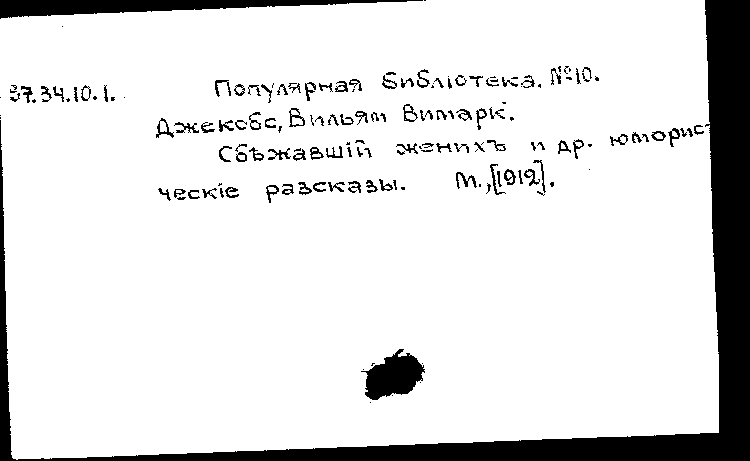 37.34.10.1. Популярная библіотека. №10.
Джекобс, Вильям Вимарк.
Сбѣжавшій женихъ и др. юморис
ческіе разсказы. М., [1912].